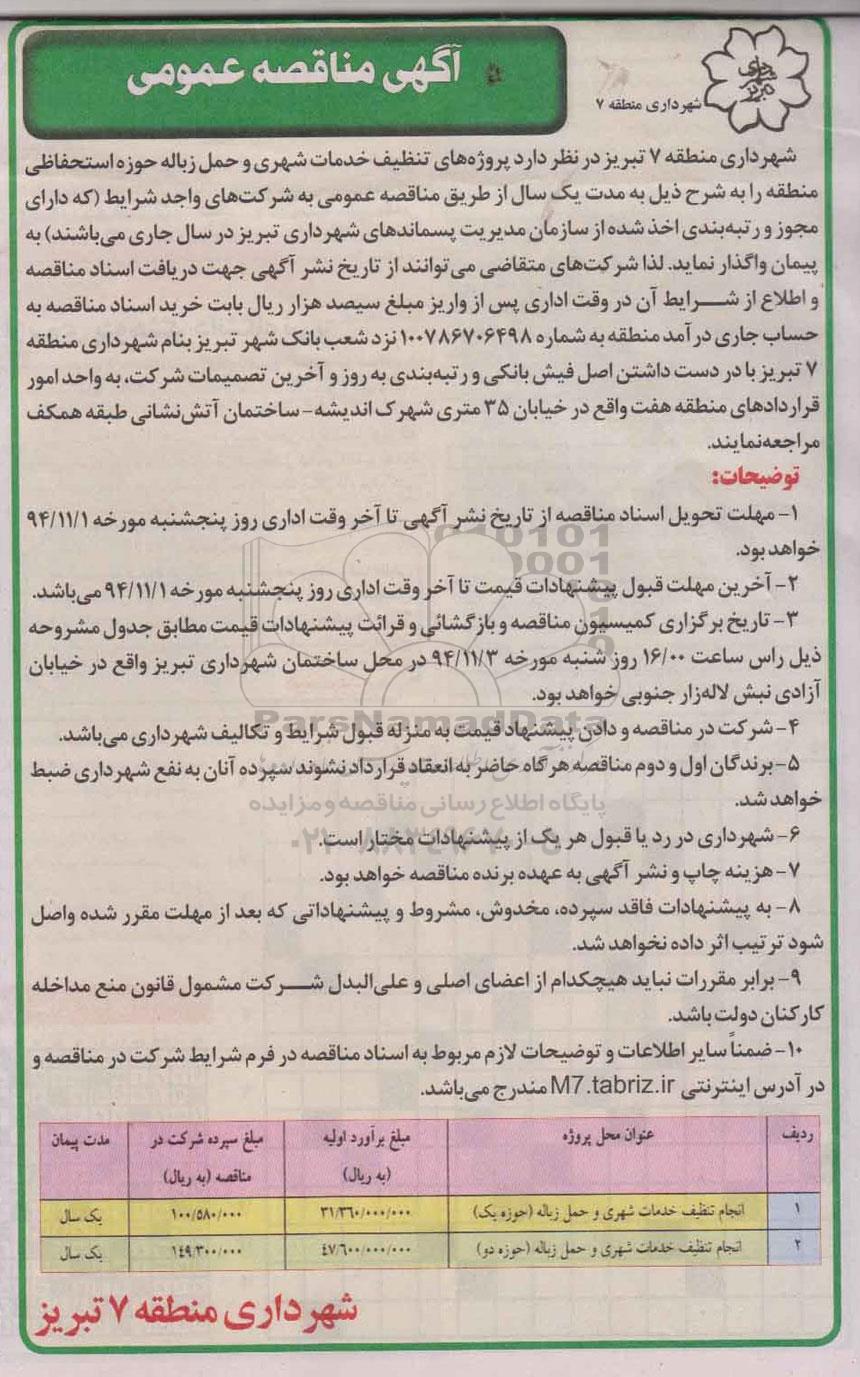 آگهی مناقصه عمومی
شهرداری تبریز
شهرداری منطقه ۷
شهرداری منطقه ۷ تبریز در نظر دارد پروژه‌های تنظیف خدمات شهری و حمل زباله حوزه استحفاظی
منطقه را به شرح ذیل به مدت یک سال از طریق مناقصه عمومی به شرکت‌های واجد شرایط (که دارای
مجوز و رتبه‌بندی اخذ شده از سازمان مدیریت پسماندهای شهرداری تبریز در سال جاری می‌باشند) به
پیمان واگذار نماید. لذا شرکت‌های متقاضی می‌توانند از تاریخ نشر آگهی جهت دریافت اسناد مناقصه
و اطلاع از شرایط آن در وقت اداری پس از واریز مبلغ سیصد هزار ریال بابت خرید اسناد مناقصه به
حساب جاری درآمد منطقه به شماره ۱۰۰۷۸۶۷۰۶۴۹۸ نزد شعب بانک شهر تبریز بنام شهرداری منطقه
۷ تبریز با در دست داشتن اصل فیش بانکی و رتبه‌بندی به روز و آخرین تصمیمات شرکت، به واحد امور
قراردادهای منطقه هفت واقع در خیابان ۳۵ متری شهرک اندیشه- ساختمان آتش‌نشانی طبقه همکف
مراجعه‌نمایند.
توضیحات:
۱- مهلت تحویل اسناد مناقصه از تاریخ نشر آگهی تا آخر وقت اداری روز پنجشنبه مورخه ۹۴/۱۱/۱
خواهد بود.
۲- آخرین مهلت قبول پیشنهادات قیمت تا آخر وقت اداری روز پنجشنبه مورخه ۹۴/۱۱/۱ می‌باشد.
۳- تاریخ برگزاری کمیسیون مناقصه و بازگشائی و قرائت پیشنهادات قیمت مطابق جدول مشروحه
ذیل راس ساعت ۱۶/۰۰ روز شنبه مورخه ۹۴/۱۱/۳ در محل ساختمان شهرداری تبریز واقع در خیابان
آزادی نبش لاله‌زار جنوبی خواهد بود.
ParsNamadData
۴- شرکت در مناقصه و دادن پیشنهاد قیمت به منزله قبول شرایط و تکالیف شهرداری می‌باشد.
۵- برندگان اول و دوم مناقصه هرگاه حاضر به انعقاد قرارداد نشوند سپرده آنان به نفع شهرداری ضبط
خواهد شد.
پایگاه اطلاع رسانی مناقصه و مزایده
۶- شهرداری در رد یا قبول هر یک از پیشنهادات مختار است.
۷- هزینه چاپ و نشر آگهی به عهده برنده مناقصه خواهد بود.
۸- به پیشنهادات فاقد سپرده، مخدوش، مشروط و پیشنهاداتی که بعد از مهلت مقرر شده واصل
شود ترتیب اثر داده نخواهد شد.
۹- برابر مقررات نباید هیچکدام از اعضای اصلی و علی‌البدل شرکت مشمول قانون منع مداخله
کارکنان دولت باشد.
۱۰- ضمناً سایر اطلاعات و توضیحات لازم مربوط به اسناد مناقصه در فرم شرایط شرکت در مناقصه و
در آدرس اینترنتی M7.tabriz.ir مندرج می‌باشد.
ردیف عنوان محل پروژه مبلغ برآورد اولیه (به ریال) مبلغ سپرده شرکت در مناقصه (به ریال) مدت پیمان
۱ انجام تنظیف خدمات شهری و حمل زباله (حوزه یک) ۳۱/۳۶۰/۰۰۰/۰۰۰ ۱۰۰/۵۸۰/۰۰۰ یک سال
۲ انجام تنظیف خدمات شهری و حمل زباله (حوزه دو) ۴۷/۶۰۰/۰۰۰/۰۰۰ ۱۴۹/۳۰۰/۰۰۰ یک سال
شهرداری منطقه ۷ تبریز